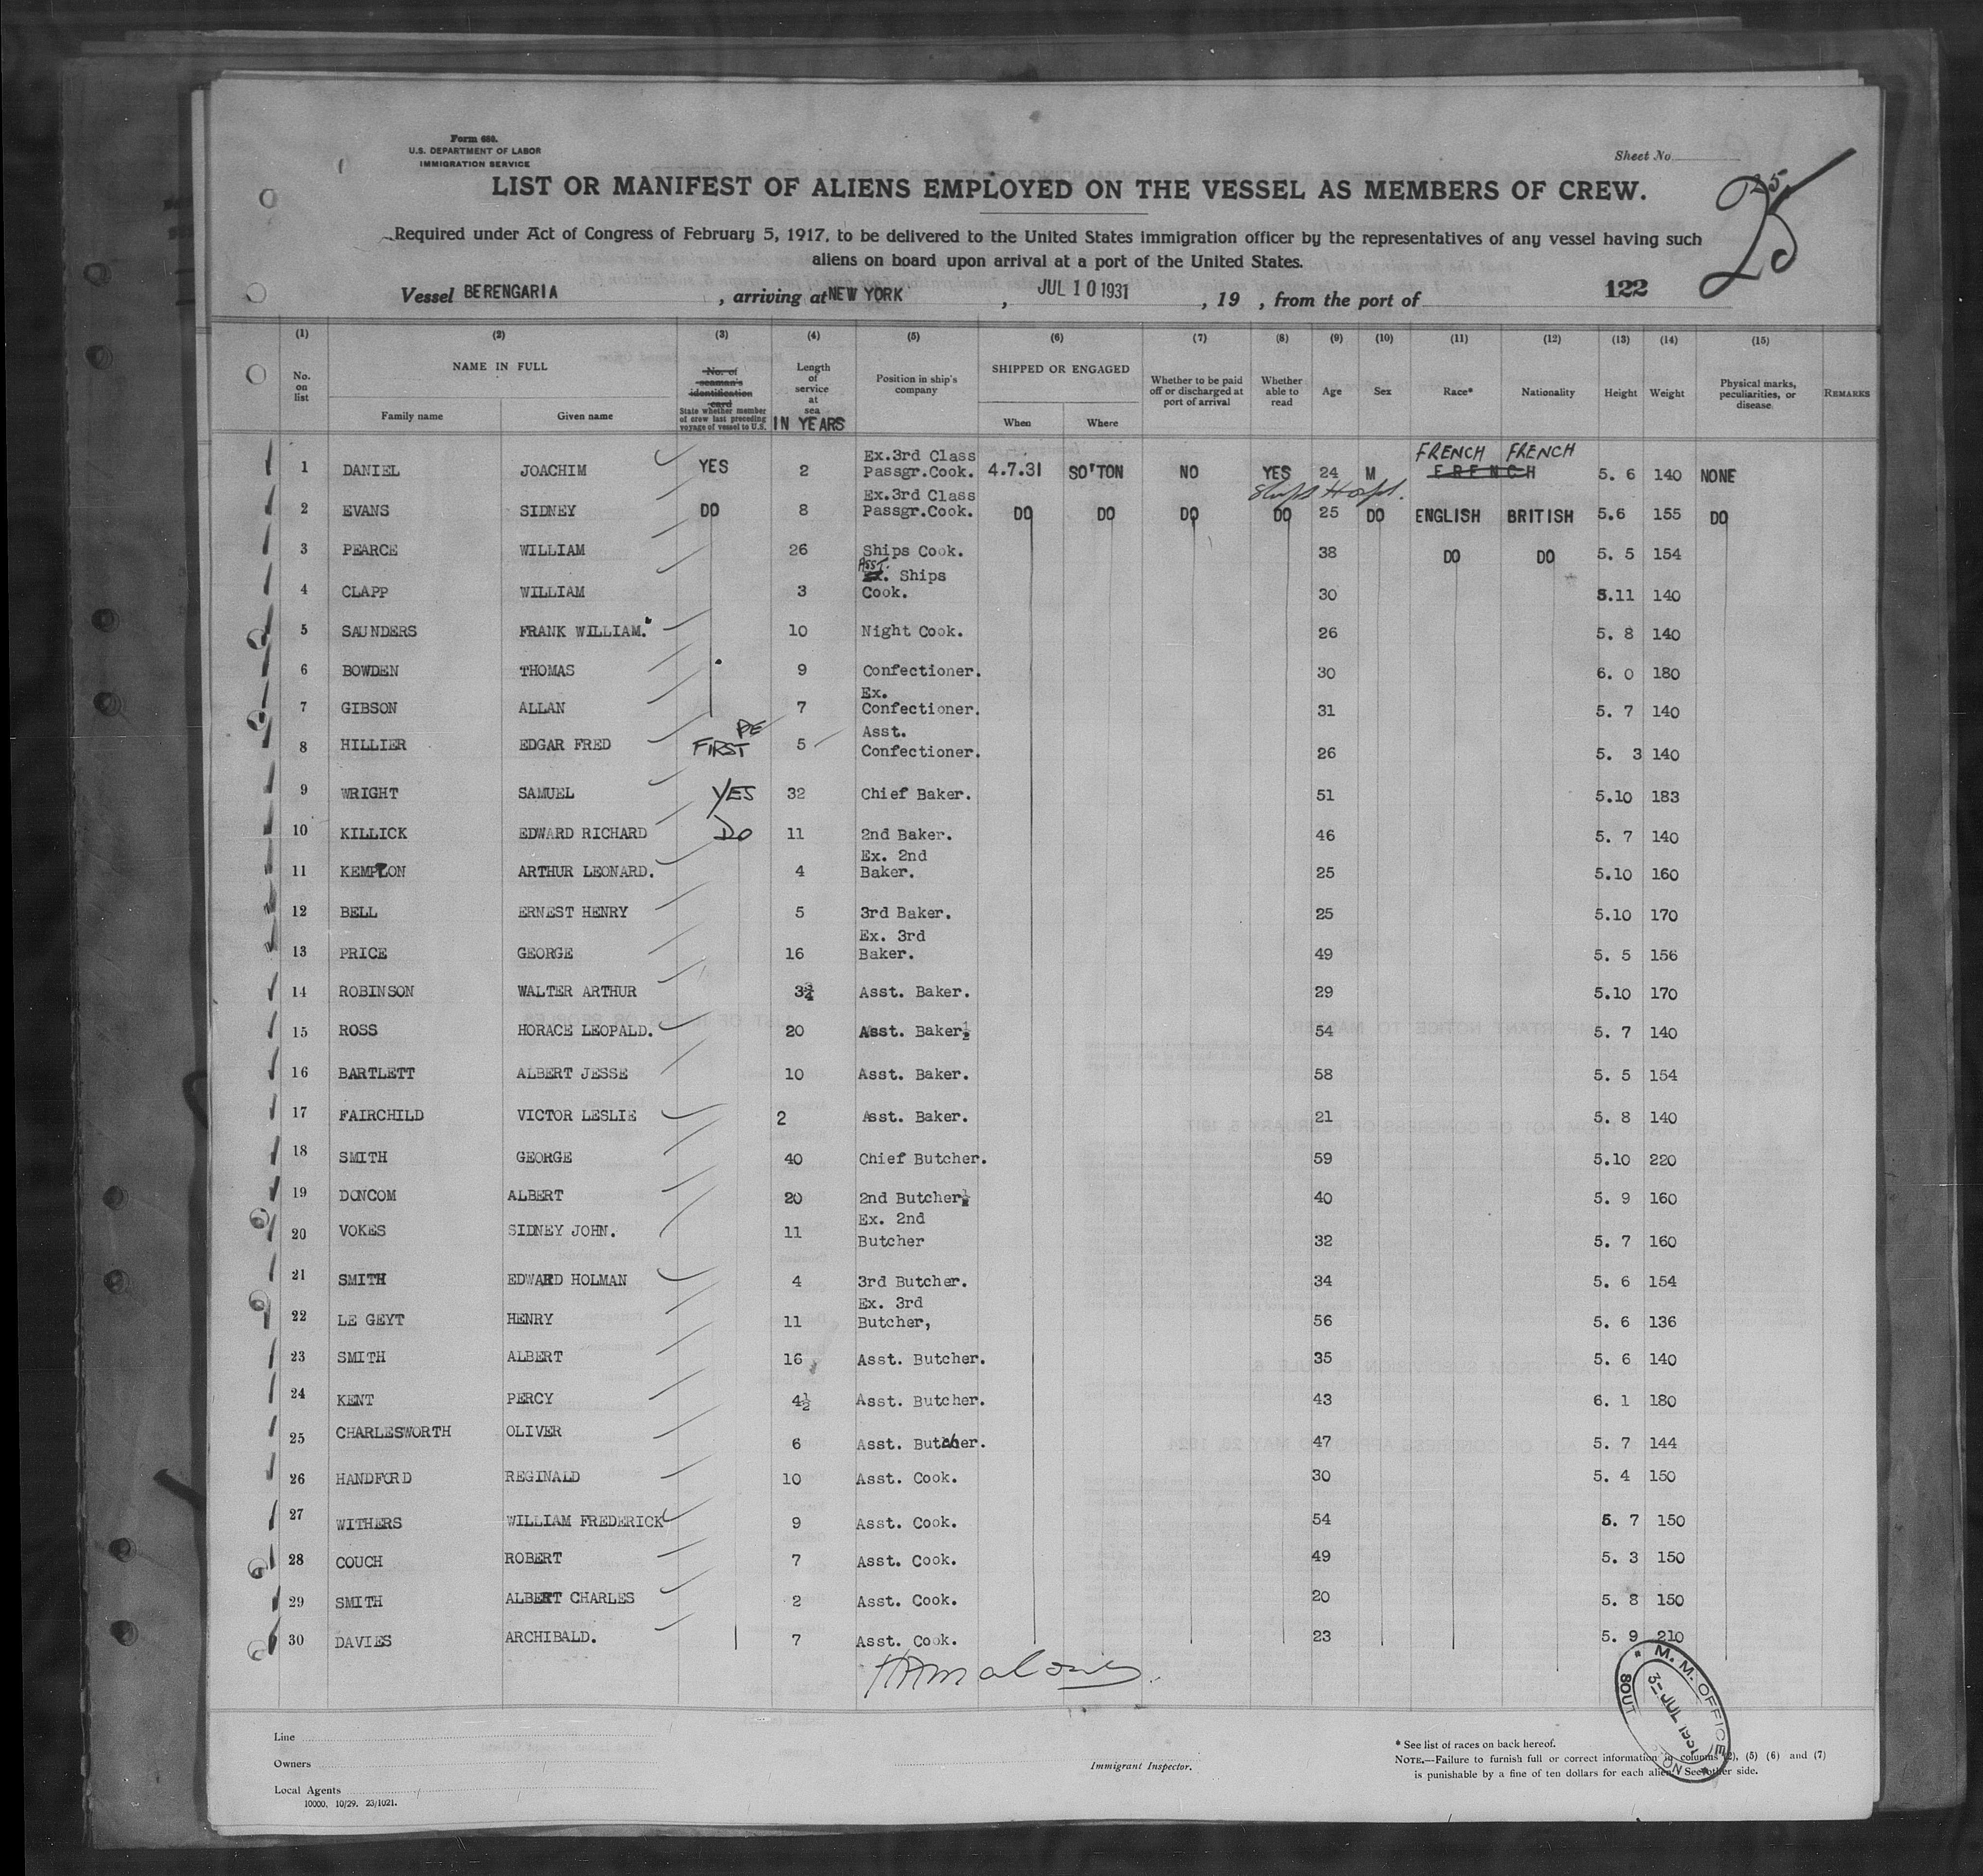 Form 680.
U.S. DEPARTMENT OF LABOR
IMMIGRATION SERVICE
Sheet No.
25
25
LIST OR MANIFEST OF ALIENS EMPLOYED ON THE VESSEL AS MEMBERS OF CREW.
Required under Act of Congress of February 5, 1917, to be delivered to the United States immigration officer by the representatives of any vessel having such
aliens on board upon arrival at a port of the United States.
Vessel BERENGARIA , arriving at NEW YORK , JUL 10 1931 , 19 , from the port of 122
(1) (2) (3) (4) (5) (6) (7) (8) (9) (10) (11) (12) (13) (14) (15)
No. on list NAME IN FULL Family name Given name No. of seaman's identification card State whether member of crew last preceding voyage of vessel to U.S. Length of service at sea IN YEARS Position in ship's company SHIPPED OR ENGAGED When Where Whether to be paid off or discharged at port of arrival Whether able to read Age Sex Race* Nationality Height Weight Physical marks, peculiarities, or disease REMARKS
FRENCH FRENCH
1 DANIEL JOACHIM YES 2 Ex.3rd Class Passgr.Cook. 4.7.31 SO'TON NO YES 24 M FRENCH 5. 6 140 NONE
Ships Hospl.
2 EVANS SIDNEY DO 8 Ex.3rd Class Passgr.Cook. DO DO DO DO 25 DO ENGLISH BRITISH 5.6 155 DO
3 PEARCE WILLIAM 26 Ships Cook. 38 DO DO 5. 5 154
4 CLAPP WILLIAM 3 ASST. Ex. Ships Cook. 30 5.11 140
5 SAUNDERS FRANK WILLIAM. 10 Night Cook. 26 5. 8 140
6 BOWDEN THOMAS 9 Confectioner. 30 6. 0 180
7 GIBSON ALLAN 7 Ex. Confectioner. 31 5. 7 140
8 HILLIER EDGAR FRED FIRST 5 Asst. Confectioner. 26 5. 3 140
9 WRIGHT SAMUEL YES 32 Chief Baker. 51 5.10 183
10 KILLICK EDWARD RICHARD DO 11 2nd Baker. 46 5. 7 140
11 KEMPTON ARTHUR LEONARD. 4 Ex. 2nd Baker. 25 5.10 160
12 BELL ERNEST HENRY 5 3rd Baker. 25 5.10 170
13 PRICE GEORGE 16 Ex. 3rd Baker. 49 5. 5 156
14 ROBINSON WALTER ARTHUR 3¾ Asst. Baker. 29 5.10 170
15 ROSS HORACE LEOPALD. 20 Asst. Baker½ 54 5. 7 140
16 BARTLETT ALBERT JESSE 10 Asst. Baker. 58 5. 5 154
17 FAIRCHILD VICTOR LESLIE 2 Asst. Baker. 21 5. 8 140
18 SMITH GEORGE 40 Chief Butcher. 59 5.10 220
19 DONCOM ALBERT 20 2nd Butcher½ 40 5. 9 160
20 VOKES SIDNEY JOHN. 11 Ex. 2nd Butcher 32 5. 7 160
21 SMITH EDWARD HOLMAN 4 3rd Butcher. 34 5. 6 154
22 LE GEYT HENRY 11 Ex. 3rd Butcher, 56 5. 6 136
23 SMITH ALBERT 16 Asst. Butcher. 35 5. 6 140
24 KENT PERCY 4½ Asst. Butcher. 43 6. 1 180
25 CHARLESWORTH OLIVER 6 Asst. Butcher. 47 5. 7 144
26 HANDFORD REGINALD 10 Asst. Cook. 30 5. 4 150
27 WITHERS WILLIAM FREDERICK 9 Asst. Cook. 54 5. 7 150
28 COUCH ROBERT 7 Asst. Cook. 49 5. 3 150
29 SMITH ALBERT CHARLES 2 Asst. Cook. 20 5. 8 150
30 DAVIES ARCHIBALD. 7 Asst. Cook. 23 5. 9 210
M. M. OFFICE
3-JUL 1931
Line
Owners
Local Agents
10000, 10/29. 23/1021.
Immigrant Inspector.
* See list of races on back hereof.
NOTE.—Failure to furnish full or correct information in columns (2), (5) (6) and (7)
is punishable by a fine of ten dollars for each alien. See other side.